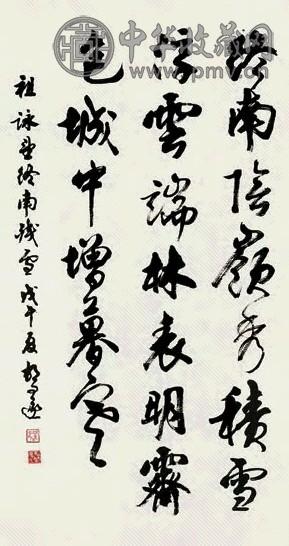 中华收藏网
www.pmv.cn
終南陰嶺秀積雪
浮雲端林表明霽
色城中增暮寒
祖詠望終南殘雪 戊午夏 胡問遂